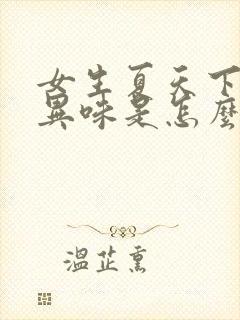 女生夏天下
異味是怎麼
溫芷熏